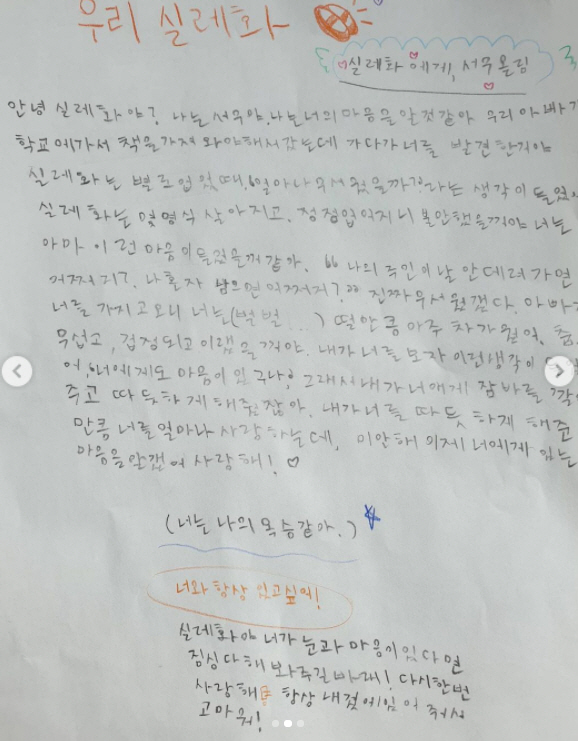 우리 실레화
실레화에게, 서무올림
안녕 실레화야? 나는 서우야, 나는 너의 마음을 알것같아 우리 아빠가
학교에가서 책을 가져 와야해서 갔는데 가다가 너를 발견한거야
실레화는 별로 업었때, 6일아나 무서웠을까?라는 생각이 들었
실레화는 몇명식 살아지고, 정점업어지니 불안했을꺼야 너는
아마 이런 마음이들었을꺼같아. "나의 주인이 날 안데려가면
어쩌지?, 나 혼자 남으면 어쩌지?" 진짜 무서웠겠다. 아빠가
너를 가지고 오니 너는 (벌벌...) 떨만큼 아주 차가웠어. 춥
무섭고, 걱정되고 이랬을꺼야. 내가 너를 보자 이런생각이
어, 너에게도 마음이 있구나? 그래서 내가 너애게 잠바를
주고 따듯하게 해줬잖아. 내가 너를 따듯하게 해준
만큼 너를 얼마나 사랑하는데, 미안해 이제 너에게 있는
마음을 알갰어 사랑해! ♡
(너는 나의 목숭같아.)
너와 항상 있고싶어!
실레화야 너가 눈과 마음이 있다면
짐싱다해 봐주길바래! 다시한번
사랑해 항상 내곁에있어 줘서
고마워!